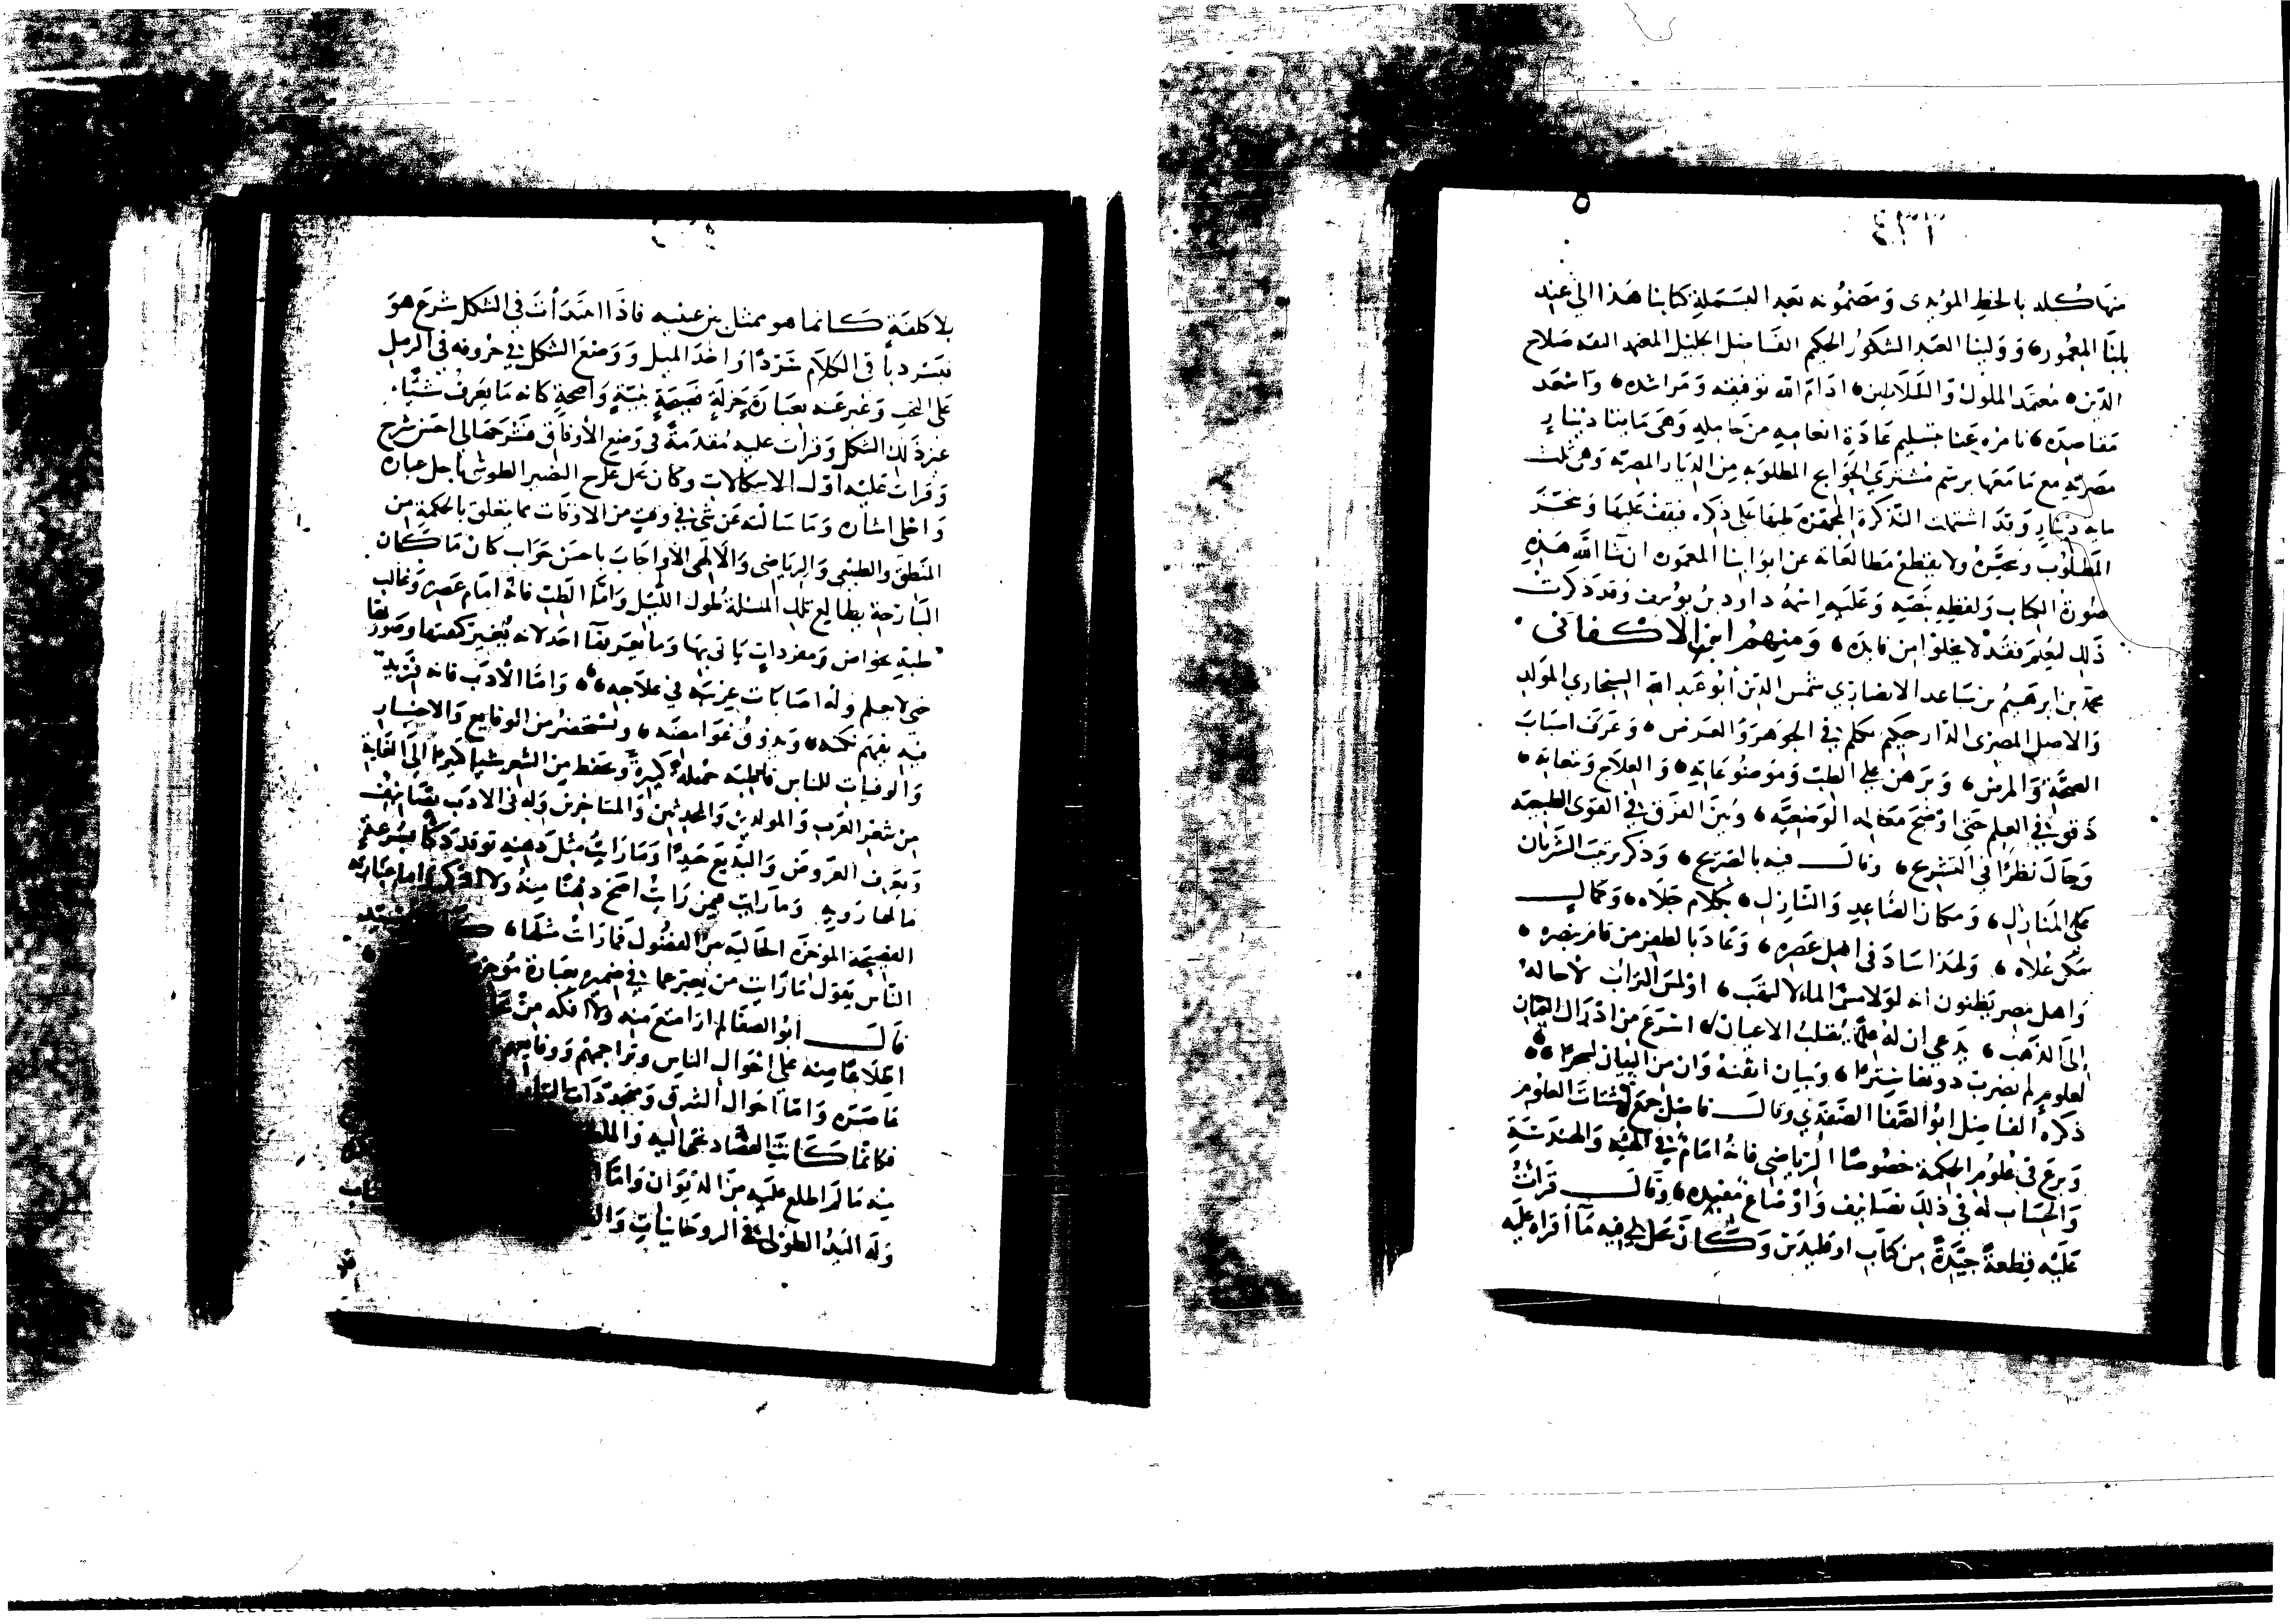 منها كله بالخط المؤيدى ومضمونه بعد البسملة كتابنا هذا الى عند
بابنا المعمور، وولينا العبد الشكور الحكيم الفاضل الجليل المعتمد الثقه صلاح
الدين، معتمد الملوك والسلاطين، ادام الله توفيقه ومراشده، واسعد
مقاصده، نامره عنا بتسليم عادة انعاميه من حامليه وهى مايتا دينار
مصريه مع ما معها برسم مشترى الحوايج المطلوبه من الديار المصريه وهى ثلث
مايه دينار وقد اشتملت التذكرة المجهزه طيها على ذكره فيقف عليها وينجز
المطلوب ويجهزه ولا يقطع مطالعاته عن ابوابنا المعموره ان شا الله هذه
صورة الكتاب ولفظه بنصه وعليه اسمه داود بن يوسف وقد ذكرت
ذلك ليعلم فقد لا يخلوا من فايده، ومنهم ابن الاكفانى
محمد بن ابرهيم بن ساعد الانصارى شمس الدين ابو عبد الله السنجارى المولد
والاصل المصرى الدار حكيم تكلم فى الجوهر والعرض، وعرف اسباب
الصحة والمرض، وبرهن على الطب وموضوعاته، والعلاج
ذوقى فى العلم حتى اوضح الوضعيه، وبين الفرق فى القوى الطبيعيه
وجال نظرا فى التشريح، وقال فيه بالصريح، وذكر ترتب الشريان
على المنازل، ومكان الصاعد والنازل، بكلام جلاه، وكمال
شكل علاه، ولهذا ساد فى اهل عصره، وعاد بالظفر من قام بنصره،
واهل مصر يظنون انه لو لامس الماء لالتهب، او لمس التراب لاحاله
الى الذهب، يدعى ان له علما يقلب الاعيان، اسرع من ادراك العيان
لعلوم لم يضرب دونها سترا، وبيان اتقنه وان من البيان لسحرا
ذكره الفاضل ابو الصفا الصفدى وقال فاضل جمع اشتات العلوم
وبرع فى علوم الحكمة خصوصا الرياضى فانه امام فى الهيئه والهندسة
والحساب له فى ذلك تصانيف واوضاع مفيده، وقال قرات
عليه قطعة جيدة من كتاب اوقليدس وكان يحل لى فيه ما اقراه عليه
بلا كلفة كانما هو ممثل بين عينيه فاذا ابتدأت فى الشكل شرع هو
فيسرد باقى الكلام سردا واخذ الميل ووضع الشكل فى حروفه فى الرمل
على التخت وعبر عنه بعبارة جزلة فصيحة بينة واضحة كانه ما يعرف شيا
غير ذلك الشكل وقرات عليه مقدمة فى وضع الاوفاق فشرحها لى احسن شرح
وقرات عليه اول الاشكالات وكان يحل شرح النصير الطوسى باجل عباره
واجلى اشاره وما سالته عن شى فى وقت من الاوقات مما يتعلق بالحكمة من
المنطق والطبيعى والرياضى والالهى الا واجاب باحسن جواب كان ما كان
البارحة يطالع تلك المسئلة طول الليل واما الطب فانه امام عصره وغالب
طبه بخواص ومفردات ياتى بها وما يعرفها احد لانه يغير كيفيتها وصورتها
حتى لا يعلم وله اصابات غريبه فى علاجه، واما الادب فانه فريد
فيه يفهم نكته، ويذوق غوامضه، ويستحضر من الوقايع والاخبار
والوفيات للناس قاطبة جمله كبيرة ويحفظ من الشعر شيا كثيرا الى الغاية
من شعر العرب والمولدين والمحدثين والمتاخرين وله فى الادب تصانيف
ويعرف العروض والبديع جيدا وما رايت مثل ذهنه يتوقد ذكاء بسرعة
ما لها رويه وما رايت فيمن رايت اصح ذهنا منه ولا اذكى اما عبارته
الفصيحة الموجزة الخالية من الفضول فما رات مثلها، كان
الناس يقول ما رايت من يعبر عما فى ضميره بعبارة موجزة
قال ابو الصفا لم ار امتع منه ولا افكه من
اطلاعا منه على احوال الناس وتراجمهم ووقايعهم
عاصره واما احوال الشرق ومتجددات التتار
فكانما كانت القصاد تجى اليه
منه ما لم اطلع عليه من الديوان واما
وله اليد الطولى فى الروحانيات